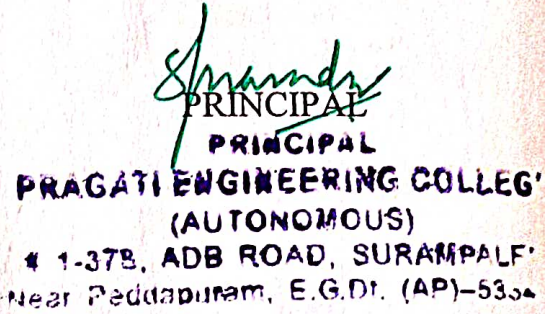 PRINCIPAL
PRINCIPAL
PRAGATI ENGINEERING COLLEG
(AUTONOMOUS)
# 1-378, ADB ROAD, SURAMPALE
Near Peddapuram, E.G.Dt. (AP)-533